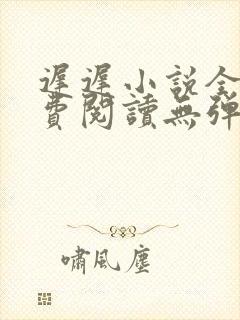 遲遲小說全
費閱讀無彈
嘯風塵